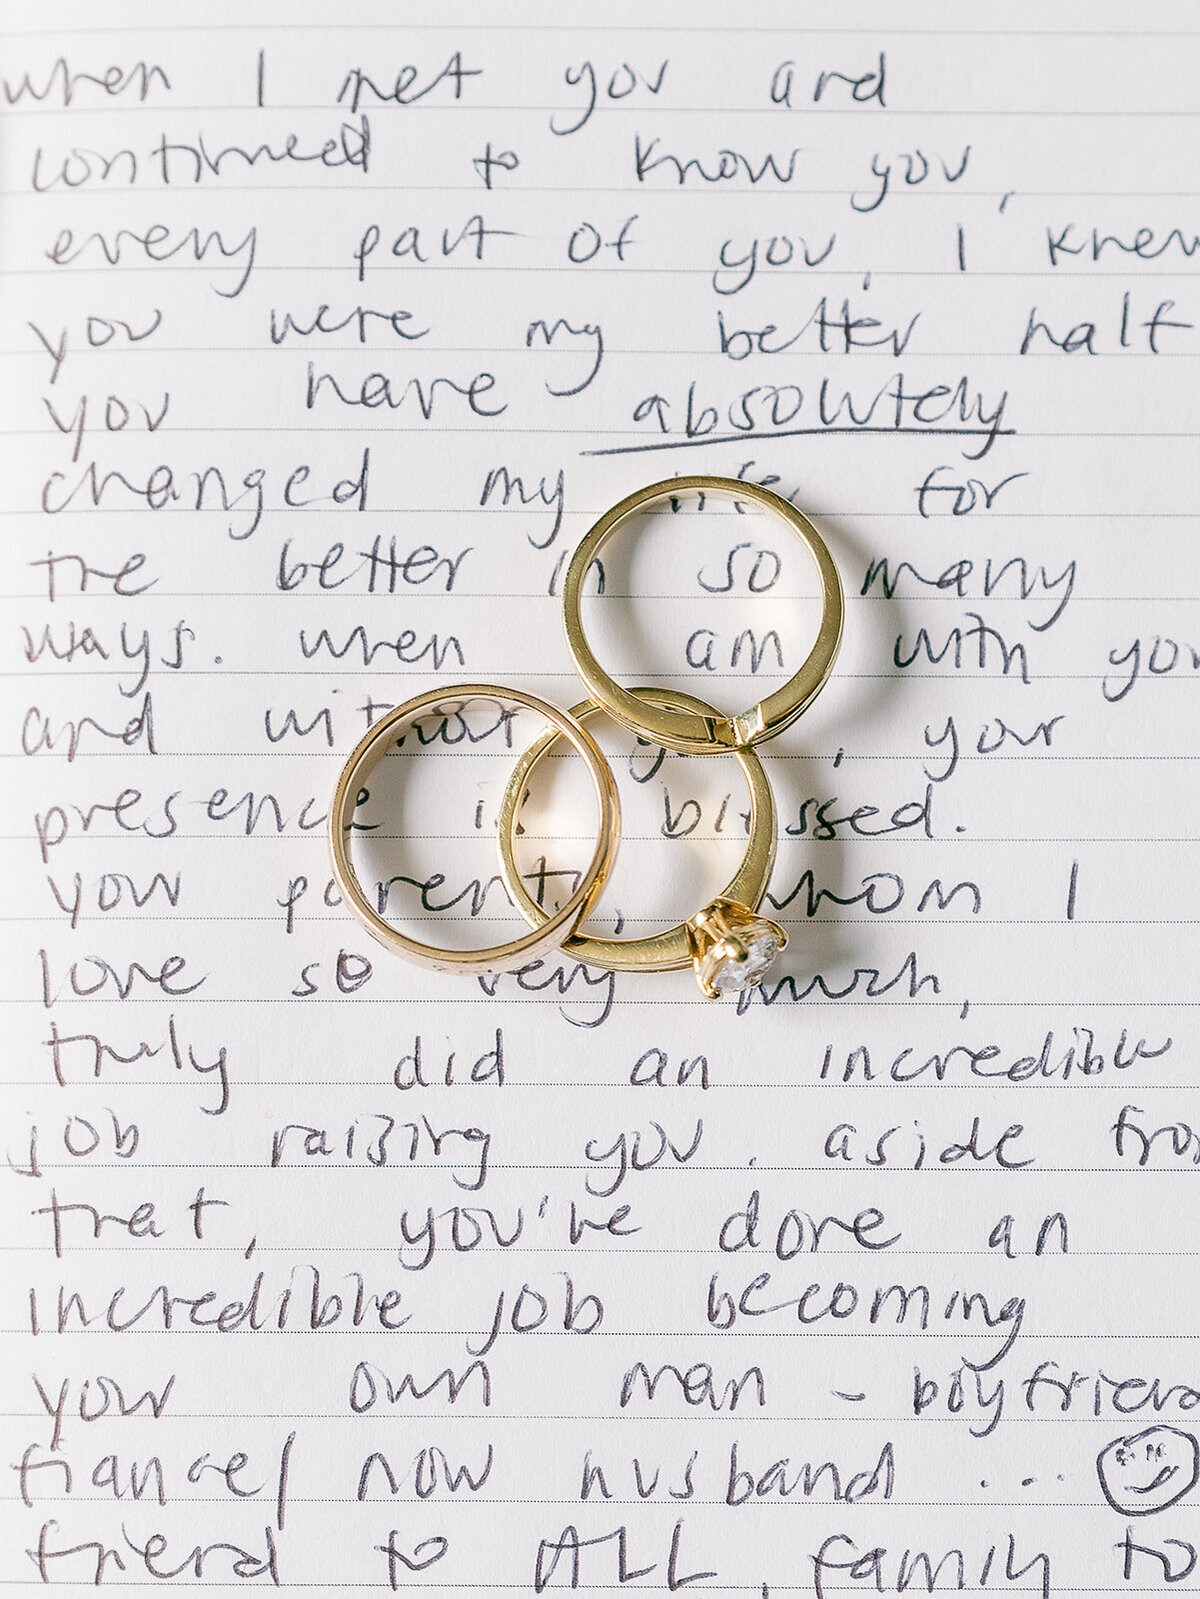 when I met you and
continued to know you,
every part of you, I knew
you were my better half
you have absolutely
changed my life for
the better in so many
ways. when am with you
and without you, your
presence is blessed.
your parents, whom I
love so very much,
truly did an incredible
job raising you. aside from
that, you've done an
incredible job becoming
your own man - boyfriend
fiance/ now husband ...
friend to ALL, family to